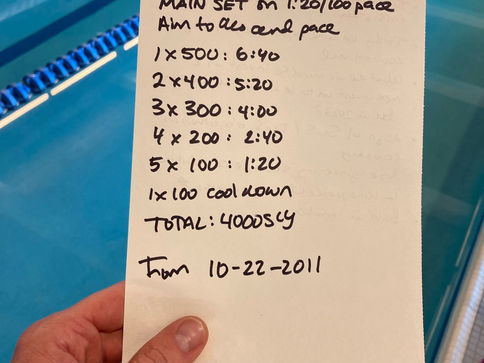 MAIN SET on 1:20/100 pace
Aim to descend pace
1 x 500: 6:40
2 x 400: 5:20
3 x 300: 4:00
4 x 200: 2:40
5 x 100: 1:20
1x100 cool down
TOTAL: 4000 SCY
From 10-22-2011